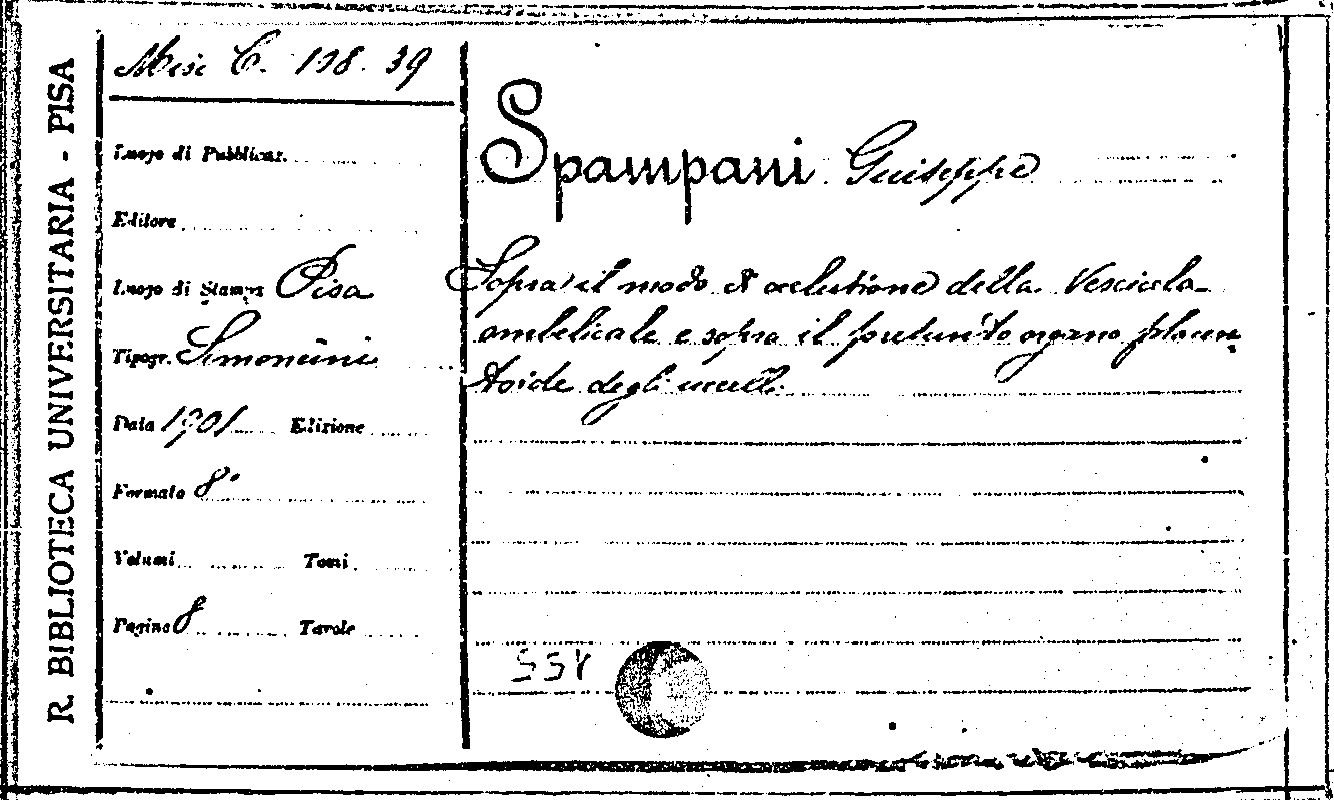 R. BIBLIOTECA UNIVERSITARIA - PISA
Misc C. 198. 39
Luogo di Pubblicaz.
Editore
Luogo di Stampa Pisa
Tipogr. Simoncini
Data 1901 Edizione
Formato 8°
Volumi Tomi
Pagine 8 Tavole
Spampani Giuseppe
Sopra il modo di occlusione della Vescicola
ombelicale e sopra il preteso organo placen-
toide degli uccelli